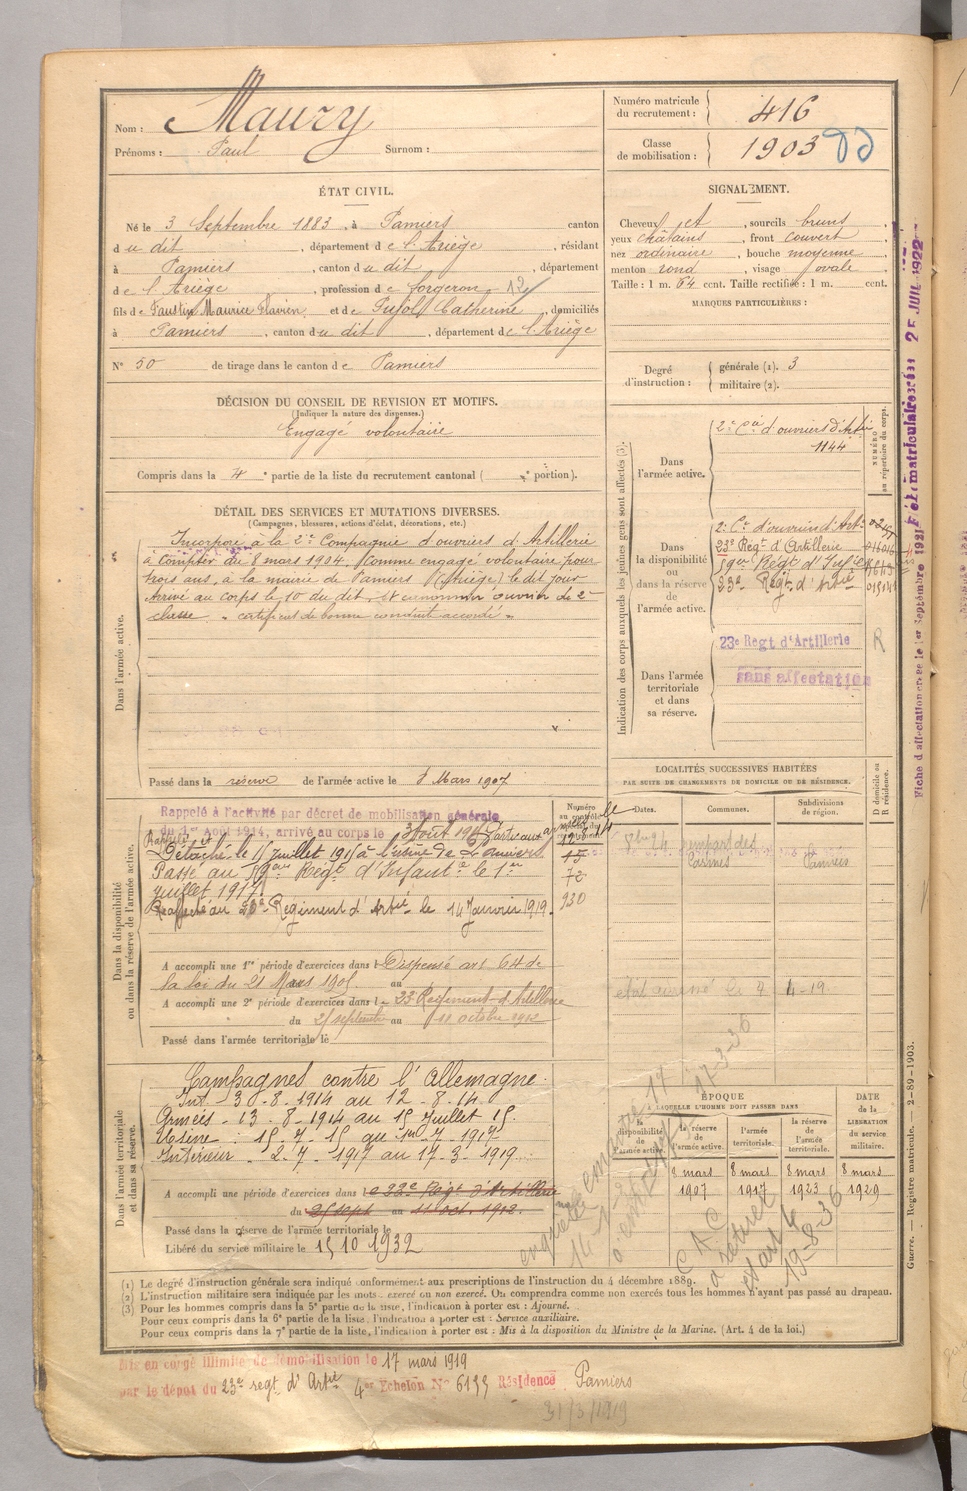 Nom : Maury
Prénoms : Paul Surnom :
Numéro matricule du recrutement : 416
Classe de mobilisation : 1903
ÉTAT CIVIL.
Né le 3 Septembre 1883, à Pamiers canton
du dit, département de l'Ariège, résidant
à Pamiers, canton du dit, département
de l'Ariège, profession de forgeron 12
fils de Faustin Maurice Flavien et de Pujol Catherine, domiciliés
à Pamiers, canton du dit, département de l'Ariège
N° 50 de tirage dans le canton de Pamiers
SIGNALEMENT.
Cheveux jet, sourcils bruns,
yeux châtains, front couvert
nez ordinaire, bouche moyenne
menton rond, visage ovale
Taille : 1 m. 64 cent. Taille rectifiée : 1 m. cent.
MARQUES PARTICULIÈRES :
Degré d'instruction : générale (1). 3
militaire (2).
DÉCISION DU CONSEIL DE REVISION ET MOTIFS.
(Indiquer la nature des dispenses.)
Engagé volontaire
Compris dans la 4e partie de la liste du recrutement cantonal ( e portion).
DÉTAIL DES SERVICES ET MUTATIONS DIVERSES.
(Campagnes, blessures, actions d'éclat, décorations, etc.)
Dans l'armée active.
Incorporé à la 2e Compagnie d'ouvriers d'Artillerie
à compter du 8 mars 1904. Comme engagé volontaire pour
trois ans, à la mairie de Pamiers (Ariège) le dit jour
Arrivé au corps le 10 du dit, et canonnier ouvrier de 2e
classe. « certificat de bonne conduite accordé »
Passé dans la réserve de l'armée active le 8 Mars 1907
Indication des corps auxquels les jeunes gens sont affectés (3).
NUMÉRO au répertoire du corps.
Dans l'armée active.
2e Cie d'ouvriers d'Artie
1144
Dans la disponibilité ou dans la réserve de l'armée active.
2e Cie d'ouvriers d'Art.
23e Régt d'Artillerie
59me Régt d'Infie
23e Régt d'Artie
Dans l'armée territoriale et dans sa réserve.
23e Regt d'Artillerie
sans affectation
R
Dans la disponibilité ou dans la réserve de l'armée active.
Rappelé à l'activité par décret de mobilisation générale
du 1er Août 1914, arrivé au corps le 3 Août 1914
Détaché le 15 juillet 1915 à l'usine de
Passé au 59me Régt d'Infantie le 1er
juillet 1917
Réaffecté au 23e Régiment d'Artie le 14 Janvier 1919.
72
930
A accompli une 1re période d'exercices dans l Dispensé art 64 de
la loi du 21 Mars 1905. au
A accompli une 2e période d'exercices dans le 23e Régiment d'Artillerie
du 25 septembre au 11 octobre 1912
Passé dans l'armée territoriale le
LOCALITÉS SUCCESSIVES HABITÉES
PAR SUITE DE CHANGEMENTS DE DOMICILE OU DE RÉSIDENCE.
Dates. Communes. Subdivisions de région. D domicile ou R résidence.
Pamiers
Dans l'armée territoriale et dans sa réserve.
Campagnes contre l'Allemagne.
Int. 3-8-1914 au 12-8-14
Armées - 13-8-1914 au 15 Juillet 15.
Usine : 15-7-15 au 1er-7-1917
Intérieur - 2-7-1917 au 17-3-1919.
A accompli une période d'exercices dans le 23e Régt d'Artillerie
du 25 sept au 11 oct. 1912.
Passé dans la réserve de l'armée territoriale le
Libéré du service militaire le 15 10 1932
ÉPOQUE
À LAQUELLE L'HOMME DOIT PASSER DANS
DATE de la LIBÉRATION du service militaire.
la disponibilité de l'armée active. la réserve de l'armée active. l'armée territoriale. la réserve de l'armée territoriale.
8 mars 1907 8 mars 1917 8 mars 1923 8 mars 1929
19-8-36
(1) Le degré d'instruction générale sera indiqué conformément aux prescriptions de l'instruction du 4 décembre 1889.
(2) L'instruction militaire sera indiquée par les mots : exercé ou non exercé. On comprendra comme non exercés tous les hommes n'ayant pas passé au drapeau.
(3) Pour les hommes compris dans la 5e partie de la liste, l'indication à porter est : Ajourné.
Pour ceux compris dans la 6e partie de la liste, l'indication à porter est : Service auxiliaire.
Pour ceux compris dans la 7e partie de la liste, l'indication à porter est : Mis à la disposition du Ministre de la Marine. (Art. 4 de la loi.)
Mis en congé illimité de démobilisation le 17 mars 1919
par le dépôt du 23e regt d'Artie 4er Echelon N° Résidence Pamiers
31/3/1919
Guerre. — Registre matricule. — 2-89-1903.